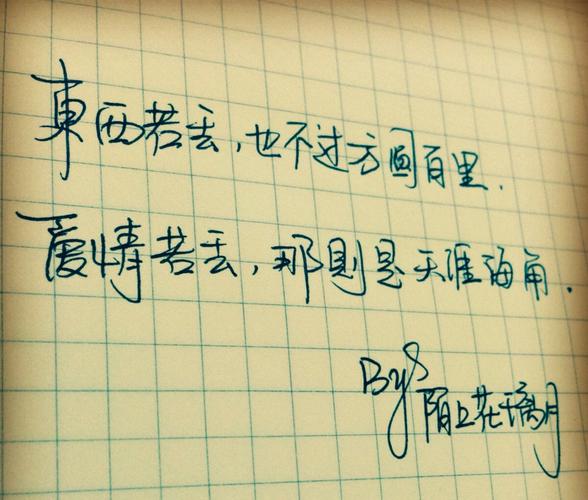 東西若丢,也不过方圆百里.
爱情若丢,那则是天涯海角.
By 陌上花千璃月